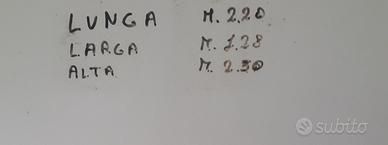 LUNGA M. 2.20
LARGA M. 1.28
ALTA M. 2.30
subito